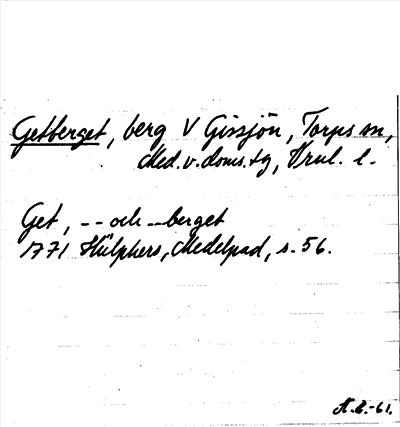 Getberget, berg V Gissjön, Torps sn,
Med. v. doms. tg, Vrnl. l.
Get, -- och --berget
1771 Hülphers, Medelpad, s. 56.
H.C.-61.